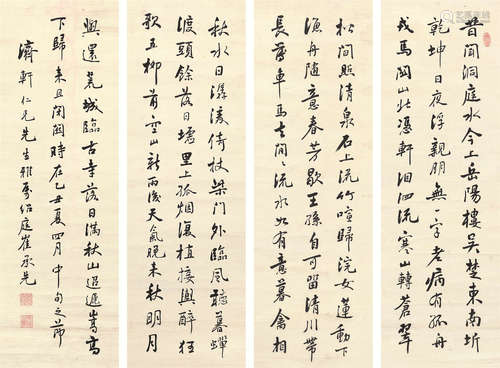 昔聞洞庭水今上岳陽樓吳楚東南坼
乾坤日夜浮親朋無一字老病有孤舟
戎馬關山北憑軒泗流寒山轉蒼翠
秋水日潺湲倚杖柴門外臨風聽暮蟬
渡頭餘落日墟里上孤烟復值接輿醉狂
歌五柳前空山新雨後天氣晚來秋明月
松間照清泉石上流竹喧歸浣女蓮動下
漁舟隨意春芳歇王孫自可留清川帶
長薄車馬去閑閑流水如有意暮禽相
與還荒城臨古幸落日滿秋山迢遞嵩高
下歸來且閉關時在乙丑夏四月中旬之節
濟軒仁兄先生雅屬紹庭崔承先